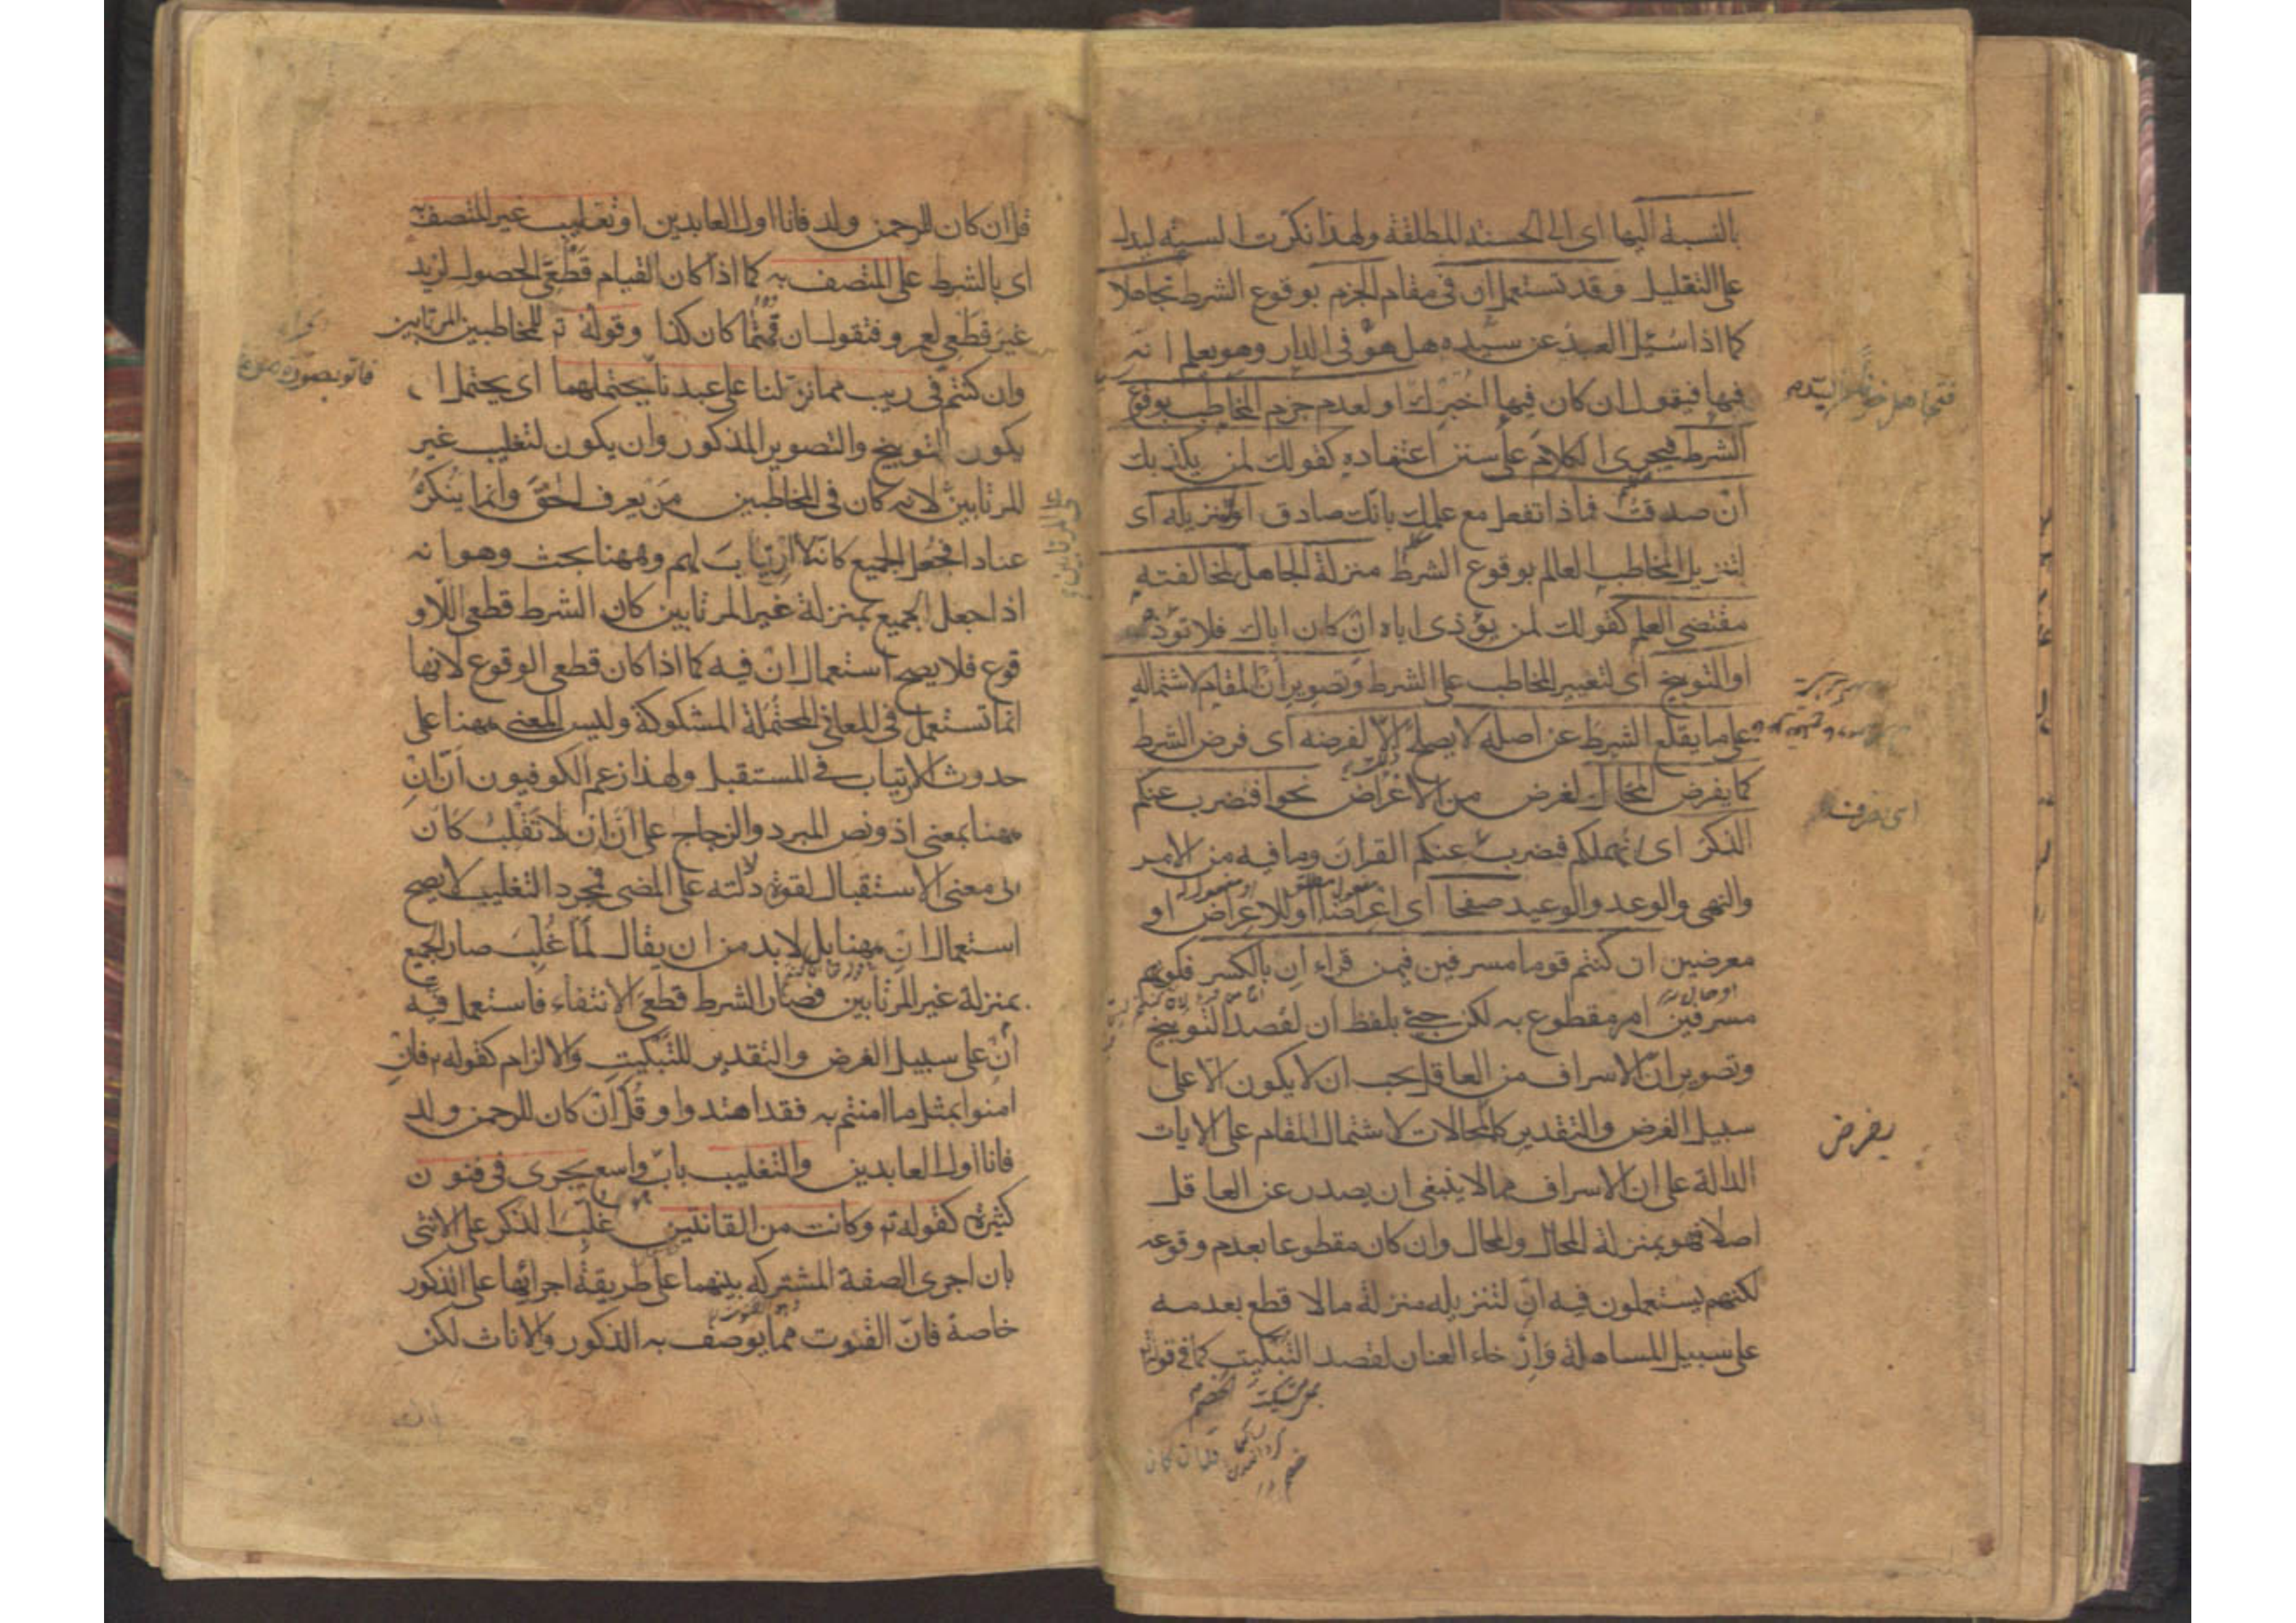 بالنسبة اليها اى الى الحسنة المطلقة ولهذا نكرت السيئة ليدل
على التقليل وقد تستعمل ان فى مقام الجزم بوقوع الشرط تجاهلا
كما اذا سئل العبد عن سيده هل هو فى الدار وهو يعلم انه
فيها فيقول ان كان فيها اخبرك او لعدم جزم المخاطب بوقوع
الشرط فيجرى الكلام على سنن اعتقاده كقولك لمن يكذبك
ان صدقت فماذا تفعل مع علمك بانك صادق او تنزيله اى
لتنزيل المخاطب العالم بوقوع الشرط منزلة الجاهل لمخالفته
مقتضى العلم كقولك لمن يؤذى اباه ان كان اباك فلا تؤذه
او التوبيخ اى لتعيير المخاطب على الشرط وتصوير ان المقام لاشتماله
على ما يقلع الشرط عن اصله لا يصلح الا لفرضه اى فرض الشرط
كما يفرض المحال لغرض من الاغراض نحو افنضرب عنكم
الذكر اى انهملكم فنضرب عنكم القران وما فيه من الامر
والنهى والوعد والوعيد صفحا اى اعراضا او للاعراض او
معرضين ان كنتم قوما مسرفين فيمن قراء ان بالكسر فكونهم
مسرفين امر مقطوع به لكن جئ بلفظ ان لقصد التوبيخ
وتصوير ان الاسراف من العاقل يجب ان لا يكون الا على
سبيل الفرض والتقدير كالمحالات لاشتمال المقام على الايات
الدالة على ان الاسراف مما لا ينبغى ان يصدر عن العاقل
اصلا فهو بمنزلة المحال والمحال وان كان مقطوعا بعدم وقوعه
لكنهم يستعملون فيه ان لتنزيله منزلة ما لا قطع بعدمه
على سبيل المساهلة وارخاء العنان لقصد التبكيت كما فى قوله
اى نصرف
يفرض
قل ان كان
قل ان كان للرحمن ولد فانا اول العابدين او تغليب غير المتصف به
اى بالشرط على المتصف به كما اذا كان القيام قطعى الحصول لزيد
غير قطعى لعمرو فتقول ان قمتما كان كذا وقوله تع للمخاطبين المرتابين
وان كنتم فى ريب مما نزلنا على عبدنا يحتملهما اى يحتمل ا
يكون التوبيخ والتصوير المذكور وان يكون لتغليب غير
المرتابين لانه كان فى المخاطبين من يعرف الحق وانما ينكره
عنادا فجعل الجميع كانه لا ارتياب لهم وههنا بحث وهو انه
اذا جعل الجميع بمنزلة غير المرتابين كان الشرط قطعى اللاو
قوع فلا يصح استعمال ان فيه كما اذا كان قطعى الوقوع لانها
انما تستعمل فى المعانى المحتملة المشكوكة وليس المعنى ههنا على
حدوث الارتياب فى المستقبل ولهذا زعم الكوفيون ان ان
ههنا بمعنى اذ ونص المبرد والزجاج على ان ان لا تقلب كان
الى معنى الاستقبال لقوة دلالته على المضى فمجرد التغليب لا يصح
استعمال ان ههنا بل لا بد من ان يقال لما غلب صار الجميع
بمنزلة غير المرتابين فصار الشرط قطعى الانتفاء فاستعمل فيه
ان على سبيل الفرض والتقدير للتبكيت والالزام كقوله تع فان
امنوا بمثل ما امنتم به فقد اهتدوا وقل ان كان للرحمن ولد
فانا اول العابدين والتغليب باب واسع يجرى فى فنون
كثيرة كقوله تع وكانت من القانتين غلب الذكر على الانثى
بان اجرى الصفة المشتركة بينهما على طريقة اجرائها على الذكور
خاصة فان القنوت مما يوصف به الذكور والاناث لكن
على المرتابين